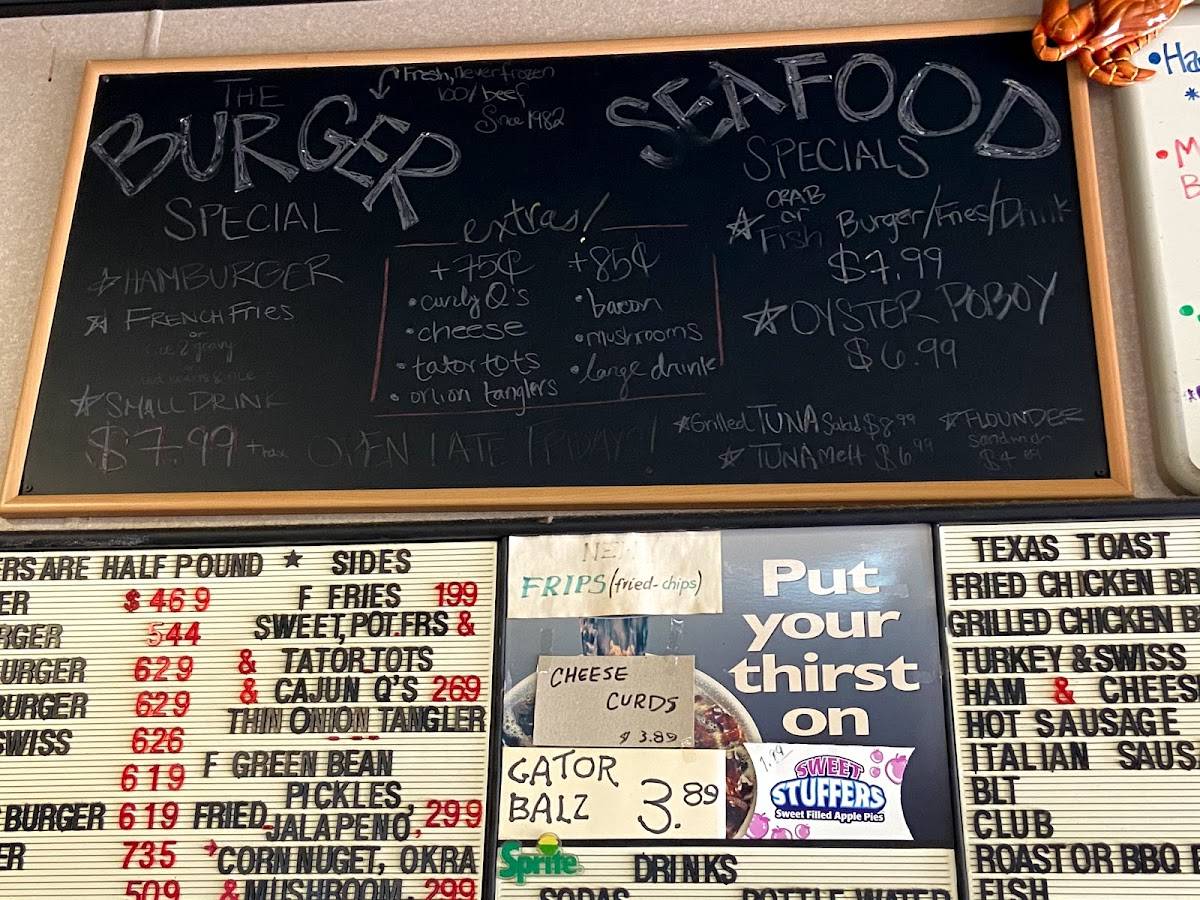 THE
BURGER
SPECIAL
Fresh, never frozen
100% beef
Since 1982
HAMBURGER
FRENCH FRIES
or
gravy
SMALL DRINK
$7.99 + tax
OPEN LATE FRIDAYS!
extras!
+75¢
• curly Q's
• cheese
• tator tots
• onion tanglers
+85¢
• bacon
• mushrooms
• large drink
SEAFOOD
SPECIALS
CRAB
or
Fish Burger/Fries/Drink
$7.99
OYSTER POBOY
$6.99
Grilled TUNA Salad $8.99
TUNA Melt $6.99
FLOUNDER
Sandwich
• Ha
• M
B
ERS ARE HALF POUND ★ SIDES
ER $469
RGER 544
URGER 629
BURGER 629
SWISS 626
619
BURGER 619
ER 735
509
F FRIES 199
SWEET, POT.FRS &
& TATORTOTS
& CAJUN Q'S 269
THIN ONION TANGLER
F GREEN BEAN
PICKLES,
FRIED JALAPENO, 299
CORN NUGET, OKRA
& MUSHROOM. 299
NEW
FRIPS (fried-chips)
CHEESE
CURDS
$ 3.89
GATOR
BALZ 3.89
Put
your
thirst
on
1.79
SWEET
STUFFERS
Sweet Filled Apple Pies
Sprite
DRINKS
SODAS BOTTLE WATER
TEXAS TOAST
FRIED CHICKEN BR
GRILLED CHICKEN B
TURKEY & SWISS
HAM & CHEES
HOT SAUSAGE
ITALIAN SAUS
BLT
CLUB
ROAST OR BBQ B
FISH